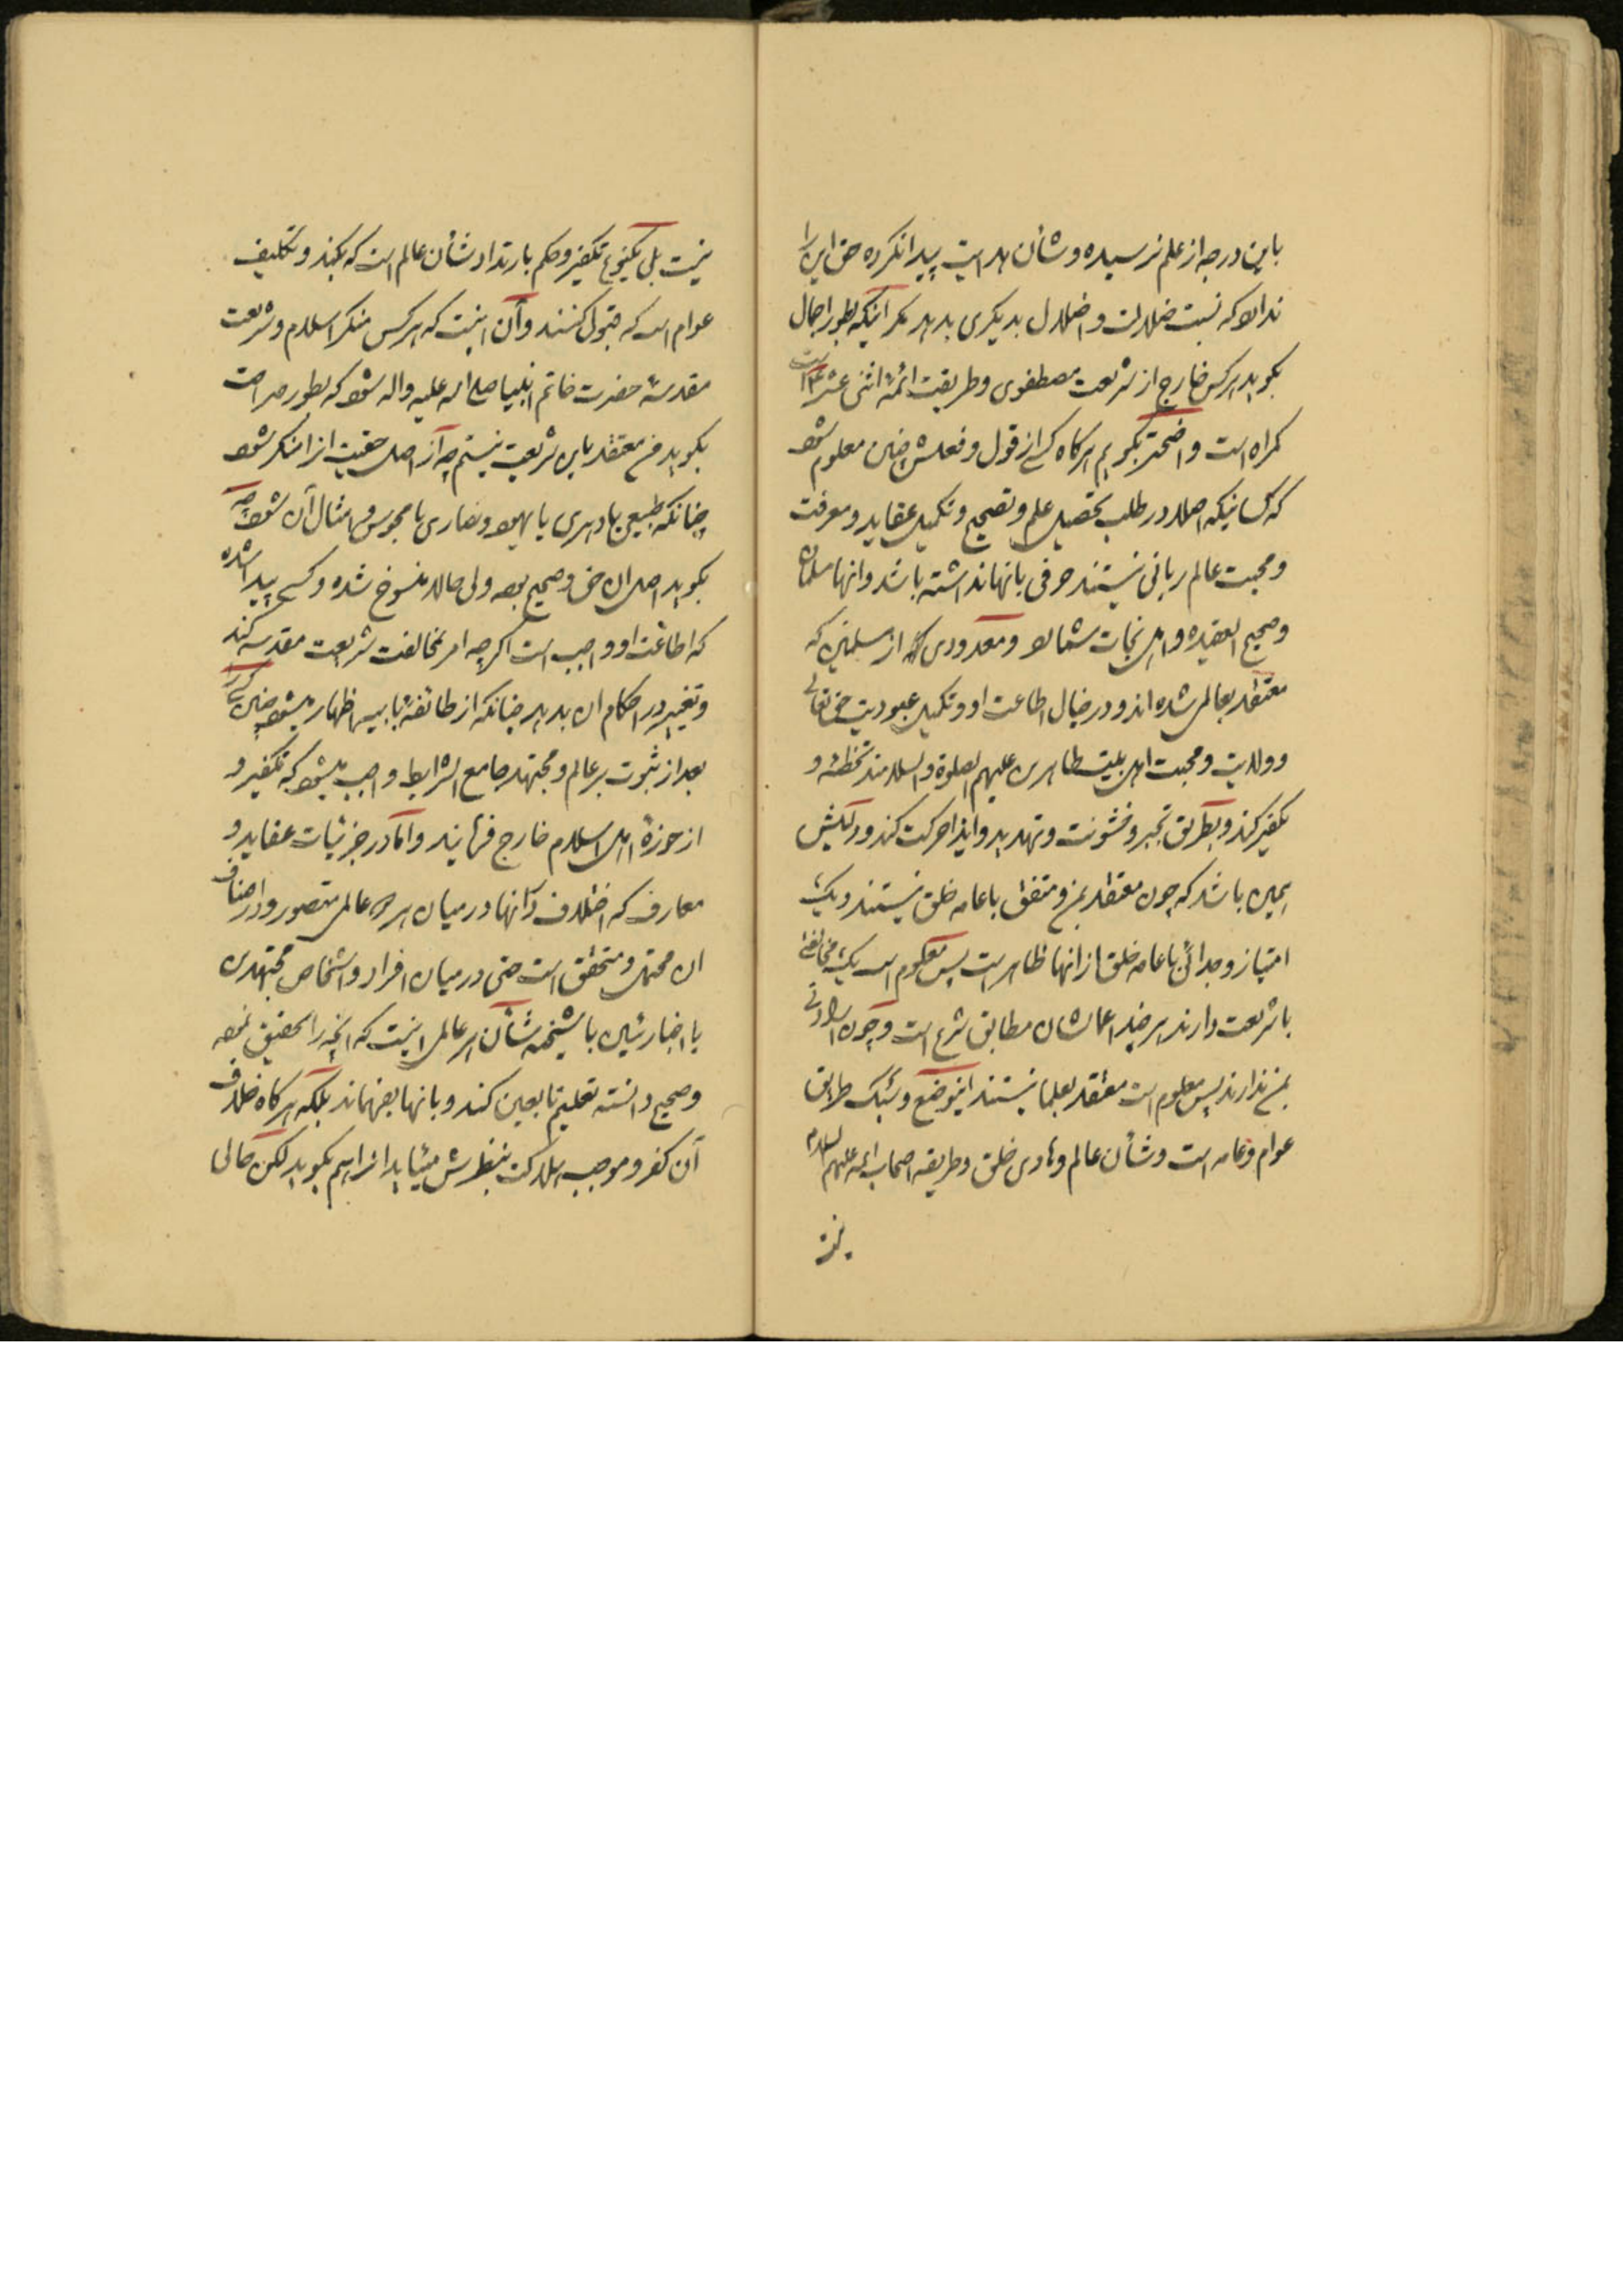 باین درجه از علم نرسیده و شأن هدایت پیدا نکرده حق این را
ندارد که نسبت ضلالت و اضلال بدیگری بدهد مگر آنیکه بطور اجمال
بگوید هرکس خارج از شریعت مصطفوی و طریقت ائمه اثنی عشر است
گمراه است واضحتر بگویم هرگاه کسی از قول و فعلش چنین معلوم شود
که کسانیکه اصلا در طلب تحصیل علم و تصحیح و تکمیل عقاید و معرفت
و محبت عالم ربانی نیستند حرفی بانها نداشته باشد و انها مسلمان
و صحیح العقیده و اهل نجات شمارد و معدودی از مسلمین که
معتقد بعالمی شده‌اند و در خیال اطاعت او و تکمیل عبودیت حق تعالی
و ولایت و محبت اهل بیت طاهرین علیهم الصلوة والسلامند تخطئه و
تکفیر کند و بطریق تجبر و خشونت و تهدید و ایذا حرکت کند و دلیلش
همین باشد که چون معتقد بمن و متفق با عامه خلق نیستند و یک
امتیاز و جدائی با عامه خلق از انها ظاهر است پس معلوم است یک مخالفتی
با شریعت دارند هرچند اعمالشان مطابق شرع است و چون ارادتی
بمن ندارند پس معلوم است معتقد بعلما نیستند اینوضع و سبک طریق
عوام و عامه است و شأن عالم و هادی خلق و طریقه اصحاب ائمه علیهم السلام
نیست
نیست بلی یکنوع تکفیر و حکم بارتداد شأن عالم است که بکند و تکلیف
عوام است که قبول کنند و آن اینست که هرکس منکر اسلام و شریعت
مقدسهٔ حضرت خاتم انبیا صلی الله علیه واله شود که بطور صراحت
بگوید من معتقد باین شریعت نیستم چه از اصل حقیت انرا منکر شود
چنانکه طبیعی یا دهری یا یهود و نصاری یا مجوس و امثال آن شود چه
بگوید اصل ان حق و صحیح بود ولی حالا منسوخ شده و کسی پیدا شده
که اطاعت او واجب است اگرچه امر بمخالفت شریعت مقدسه کند
و تغییر در احکام ان بدهد چنانکه از طائفهٔ بابیه اظهار میشود چنین کسی را
بعد از ثبوت بر عالم و مجتهد جامع الشرایط واجب میشود که تکفیر و
از حوزهٔ اهل اسلام خارج فرمایند و اما در جزئیات عقاید و
معارف که اختلاف در آنها در میان هر دو عالمی متصور و در اصناف
ان محتمل و متحقق است حتی در میان افراد و اشخاص مجتهدین
یا اخبارئین یا شیخیه شأن هر عالمی اینست که انچه را تحقیق نموده
و صحیح دانسته تعلیم تابعین کند و بانها بفهماند بلکه هرگاه خلاف
آن کفر و موجب هلاکت بنظرش میئاید انرا هم بگوید لکن حالی